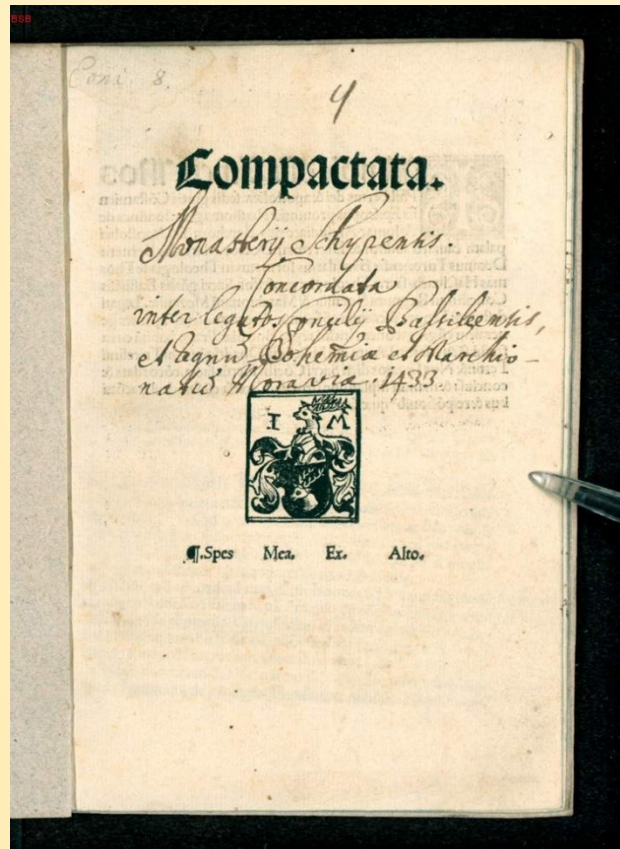 BSB
Conc. 8.
4
Compactata.
Monasterij Schyrensis.
Concordata
inter legatos Concilij Basileensis,
et Regnũ Bohemiæ et Marchio-
natũ Moraviæ. 1433
I M
¶.Spes Mea. Ex. Alto.